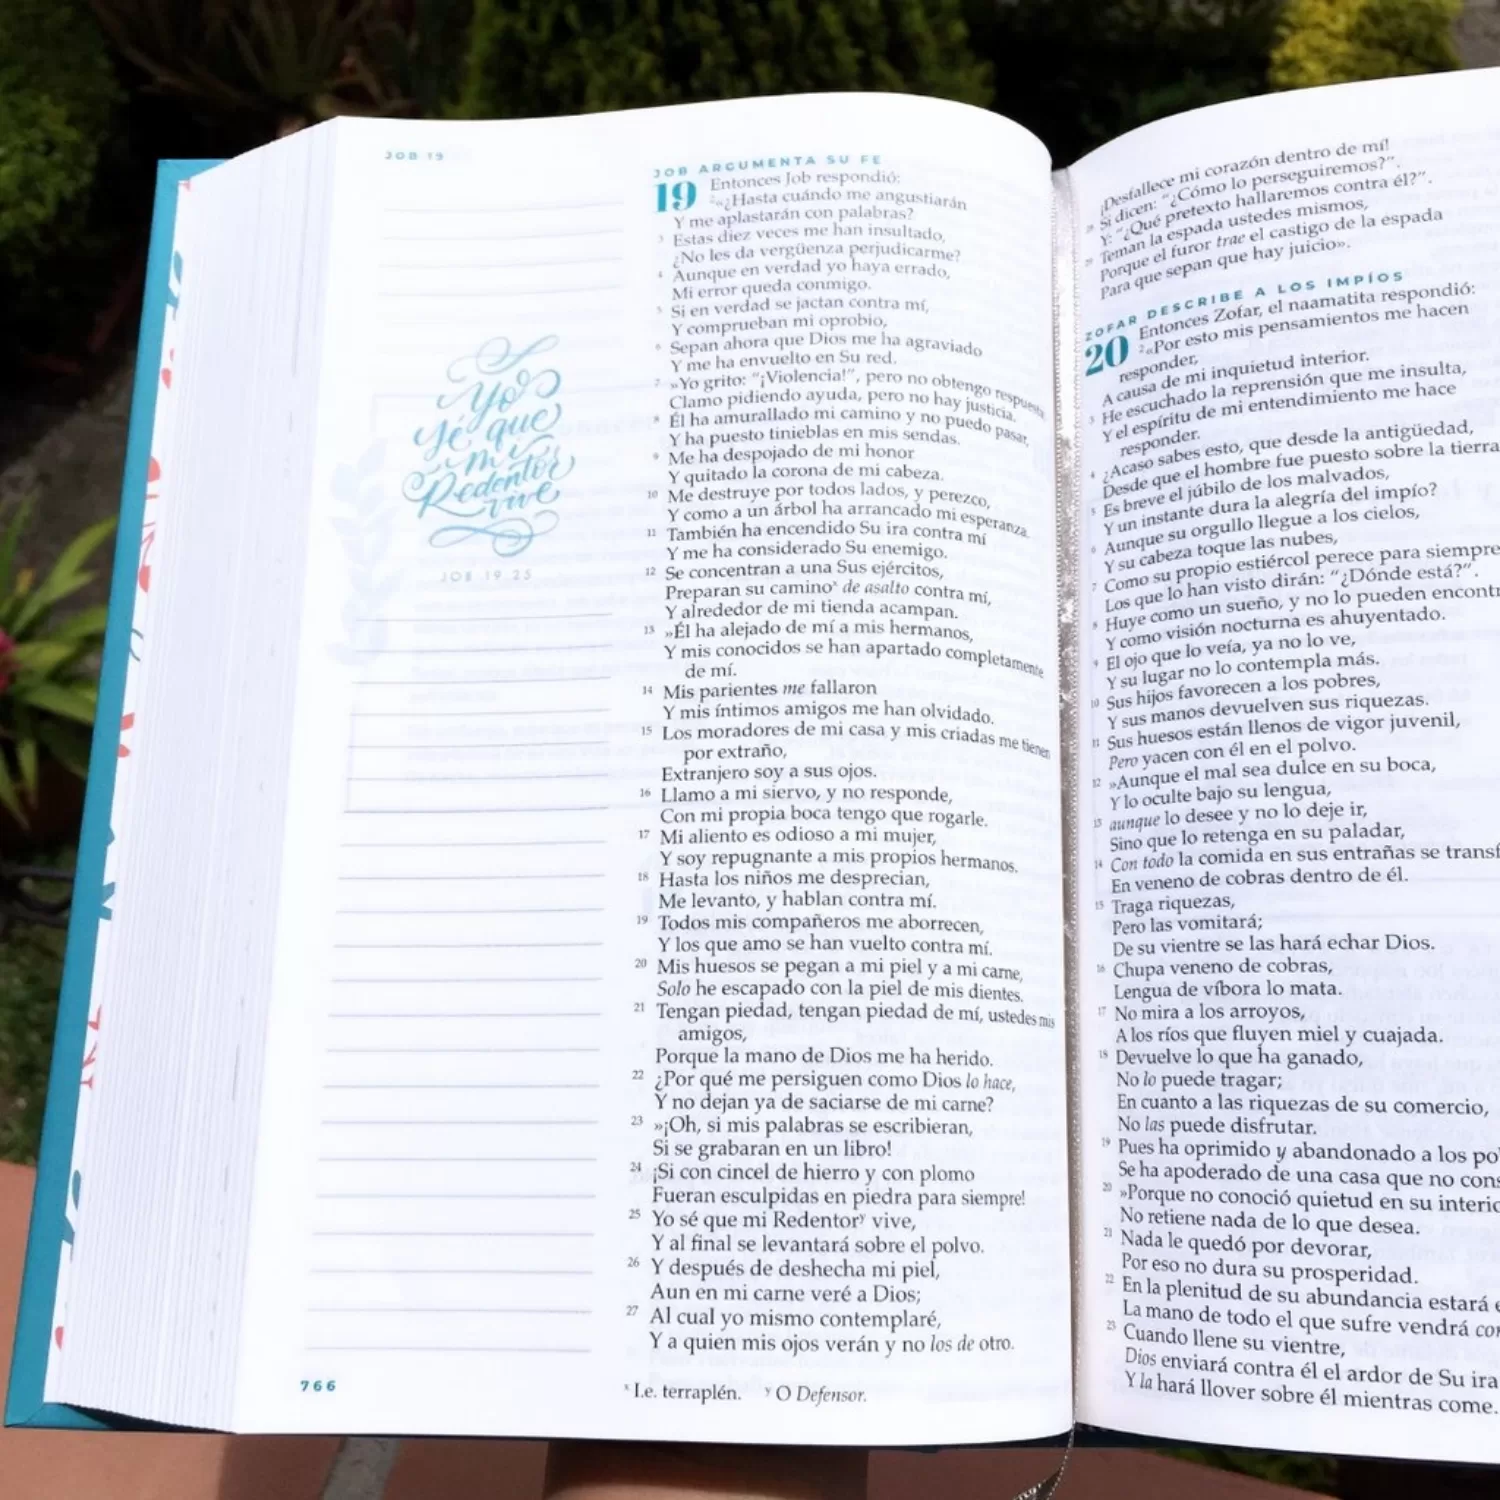 JOB 19
Yo
sé que
mi
Redentor
vive
JOB 19.25
JOB ARGUMENTA SU FE
19 Entonces Job respondió:
2 «¿Hasta cuándo me angustiarán
Y me aplastarán con palabras?
3 Estas diez veces me han insultado,
¿No les da vergüenza perjudicarme?
4 Aunque en verdad yo haya errado,
Mi error queda conmigo.
5 Si en verdad se jactan contra mí,
Y comprueban mi oprobio,
6 Sepan ahora que Dios me ha agraviado
Y me ha envuelto en Su red.
7 »Yo grito: “¡Violencia!”, pero no obtengo respuesta
Clamo pidiendo ayuda, pero no hay justicia.
8 Él ha amurallado mi camino y no puedo pasar,
Y ha puesto tinieblas en mis sendas.
9 Me ha despojado de mi honor
Y quitado la corona de mi cabeza.
10 Me destruye por todos lados, y perezco,
Y como a un árbol ha arrancado mi esperanza.
11 También ha encendido Su ira contra mí
Y me ha considerado Su enemigo.
12 Se concentran a una Sus ejércitos,
Preparan su caminoˣ de asalto contra mí,
Y alrededor de mi tienda acampan.
13 »Él ha alejado de mí a mis hermanos,
Y mis conocidos se han apartado completamente
de mí.
14 Mis parientes me fallaron
Y mis íntimos amigos me han olvidado.
15 Los moradores de mi casa y mis criadas me tienen
por extraño,
Extranjero soy a sus ojos.
16 Llamo a mi siervo, y no responde,
Con mi propia boca tengo que rogarle.
17 Mi aliento es odioso a mi mujer,
Y soy repugnante a mis propios hermanos.
18 Hasta los niños me desprecian,
Me levanto, y hablan contra mí.
19 Todos mis compañeros me aborrecen,
Y los que amo se han vuelto contra mí.
20 Mis huesos se pegan a mi piel y a mi carne,
Solo he escapado con la piel de mis dientes.
21 Tengan piedad, tengan piedad de mí, ustedes mis
amigos,
Porque la mano de Dios me ha herido.
22 ¿Por qué me persiguen como Dios lo hace,
Y no dejan ya de saciarse de mi carne?
23 »¡Oh, si mis palabras se escribieran,
Si se grabaran en un libro!
24 ¡Si con cincel de hierro y con plomo
Fueran esculpidas en piedra para siempre!
25 Yo sé que mi Redentorʸ vive,
Y al final se levantará sobre el polvo.
26 Y después de deshecha mi piel,
Aun en mi carne veré a Dios;
27 Al cual yo mismo contemplaré,
Y a quien mis ojos verán y no los de otro.
766
ˣ I.e. terraplén. ʸ O Defensor.
¡Desfallece mi corazón dentro de mí!
28 Si dicen: “¿Cómo lo perseguiremos?”.
Y: “¿Qué pretexto hallaremos contra él?”.
29 Teman la espada ustedes mismos,
Porque el furor trae el castigo de la espada
Para que sepan que hay juicio».
ZOFAR DESCRIBE A LOS IMPÍOS
20 Entonces Zofar, el naamatita respondió:
2 «Por esto mis pensamientos me hacen
responder,
A causa de mi inquietud interior.
3 He escuchado la reprensión que me insulta,
Y el espíritu de mi entendimiento me hace
responder.
4 ¿Acaso sabes esto, que desde la antigüedad,
Desde que el hombre fue puesto sobre la tierra
5 Es breve el júbilo de los malvados,
Y un instante dura la alegría del impío?
6 Aunque su orgullo llegue a los cielos,
Y su cabeza toque las nubes,
7 Como su propio estiércol perece para siempre
Los que lo han visto dirán: “¿Dónde está?”.
8 Huye como un sueño, y no lo pueden encontr
Y como visión nocturna es ahuyentado.
9 El ojo que lo veía, ya no lo ve,
Y su lugar no lo contempla más.
10 Sus hijos favorecen a los pobres,
Y sus manos devuelven sus riquezas.
11 Sus huesos están llenos de vigor juvenil,
Pero yacen con él en el polvo.
12 »Aunque el mal sea dulce en su boca,
Y lo oculte bajo su lengua,
13 aunque lo desee y no lo deje ir,
Sino que lo retenga en su paladar,
14 Con todo la comida en sus entrañas se transf
En veneno de cobras dentro de él.
15 Traga riquezas,
Pero las vomitará;
De su vientre se las hará echar Dios.
16 Chupa veneno de cobras,
Lengua de víbora lo mata.
17 No mira a los arroyos,
A los ríos que fluyen miel y cuajada.
18 Devuelve lo que ha ganado,
No lo puede tragar;
En cuanto a las riquezas de su comercio,
No las puede disfrutar.
19 Pues ha oprimido y abandonado a los po
Se ha apoderado de una casa que no cons
20 »Porque no conoció quietud en su interio
No retiene nada de lo que desea.
21 Nada le quedó por devorar,
Por eso no dura su prosperidad.
22 En la plenitud de su abundancia estará e
La mano de todo el que sufre vendrá con
23 Cuando llene su vientre,
Dios enviará contra él el ardor de Su ira
Y la hará llover sobre él mientras come.